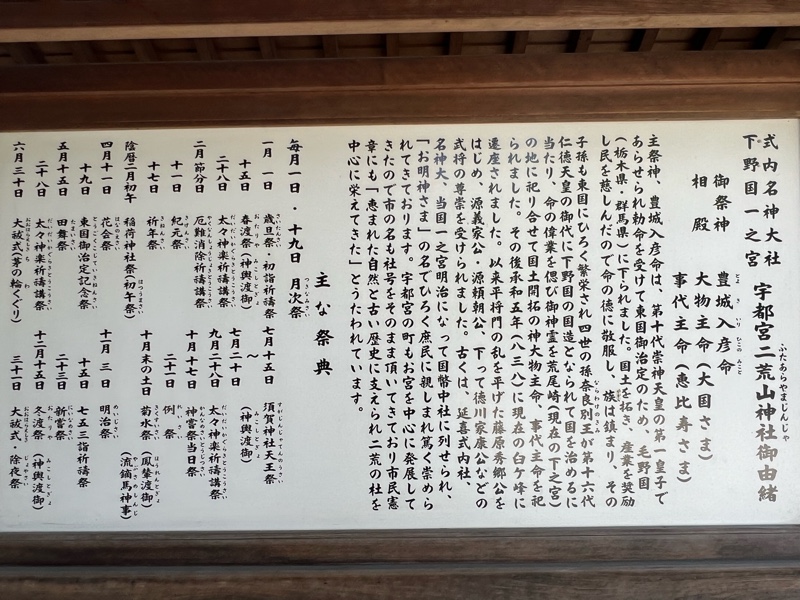 式内名神大社
下野国一之宮 宇都宮二荒山神社御由緒
御祭神 豊城入彦命
相殿 大物主命(大国さま)
事代主命(恵比寿さま)
主祭神、豊城入彦命は、第十代崇神天皇の第一皇子で
あらせられ勅命を受けて東国御治定のため、毛野国
(栃木県・群馬県)に下られました。国土を拓き、産業を奨励
し民を慈しんだので命の徳に敬服し、族は鎮まり、その
子孫も東国にひろく繁栄され四世の孫奈良別王が第十六代
仁徳天皇の御代に下野国の国造となられて国を治めるに
当たり、命の偉業を偲び御神霊を荒尾崎(現在の下之宮)
の地に祀り合せて国土開拓の神大物主命、事代主命を祀
られました。その後承和五年(八三八)に現在の臼ケ峰に
遷座されました。以来平将門の乱を平げた藤原秀郷公を
はじめ、源義家公・源頼朝公、下って徳川家康公などの
武将の尊崇を受けられました。古くは、延喜式内社、
名神大、当国一之宮明治になって国幣中社に列せられ、
「お明神さま」の名でひろく庶民に親しまれ篤く崇めら
れてきております。宇都宮の町もお宮を中心に発展して
きたので市の名も社号をそのまま頂いてきており市民憲
章にも「恵まれた自然と古い歴史に支えられ二荒の杜を
中心に栄えてきた」とうたわれています。
主な祭典
毎月一日・十九日 月次祭
一月一日 歳旦祭・初詣祈禱祭
十五日 春渡祭(神輿渡御)
二十八日 太々神楽祈禱講祭
二月節分日 厄難消除祈禱講祭
十一日 紀元祭
十七日 祈年祭
陰暦二月初午 稲荷神社祭(初午祭)
四月十一日 花会祭
十九日 東国御治定記念祭
五月十五日 田舞祭
二十八日 太々神楽祈禱講祭
六月三十日 大祓式(茅の輪くぐり)
七月十五日 須賀神社天王祭
〜
七月二十日 (神輿渡御)
九月二十八日 太々神楽祈禱講祭
十月十七日 神嘗祭当日祭
二十一日 例祭
十月末の土日 菊水祭(鳳輦渡御)
(流鏑馬神事)
十一月三日 明治祭
十五日 七五三詣祈禱祭
二十三日 新嘗祭
十二月十五日 冬渡祭(神輿渡御)
三十一日 大祓式、除夜祭